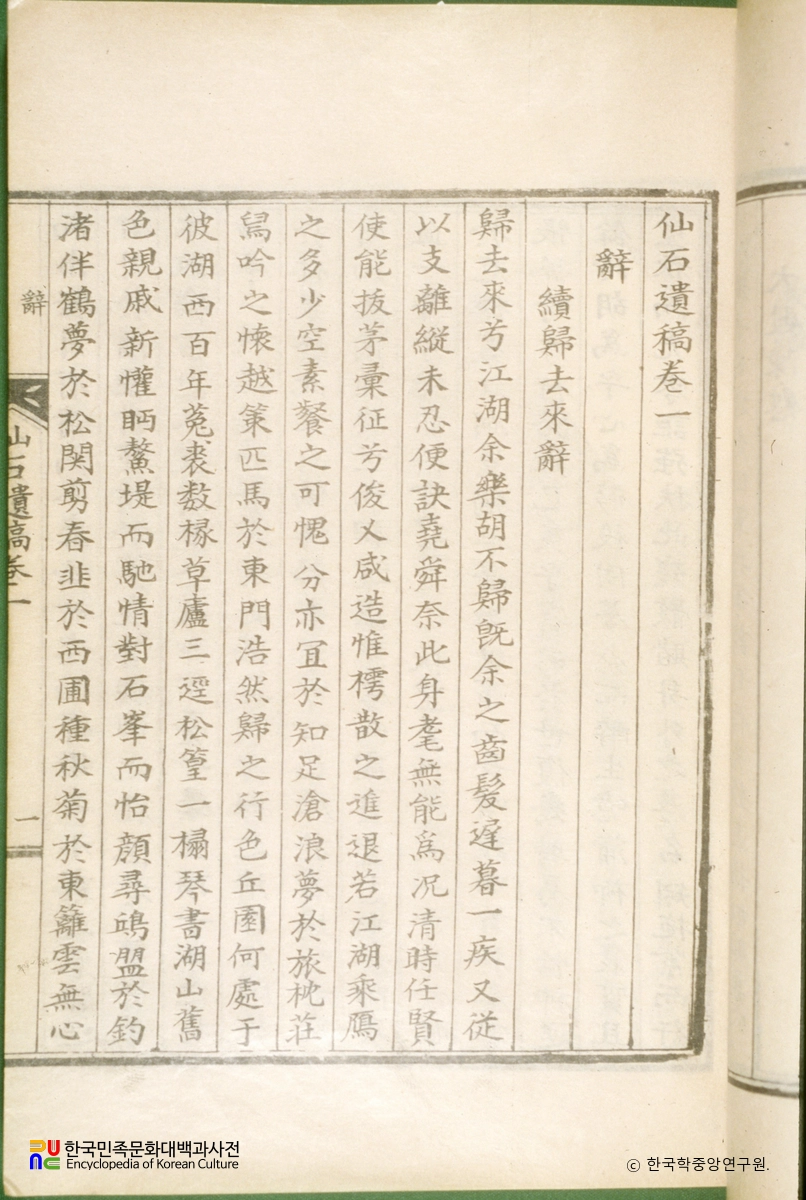 仙石遺稿卷一
辭
續歸去來辭
歸去來兮江湖余樂胡不歸旣余之齒髮遲暮一疾又從
以支離縱未忍便訣堯舜奈此身耄無能爲况清時任賢
使能拔茅彙征兮俊乂咸造惟樗散之進退若江湖乘鴈
之多少空素餐之可愧分亦宜於知足滄浪夢於旅枕莊
舃吟之懷越策匹馬於東門浩然歸之行色丘園何處于
彼湖西百年菟裘数椽草廬三逕松篁一榻琴書湖山舊
色親戚新懽眄鰲堤而馳情對石峯而怡顔尋鴟盟於釣
渚伴鶴夢於松関剪春韭於西圃種秋菊於東籬雲無心
辭
仙石遺稿卷一
一
한국민족문화대백과사전
Encyclopedia of Korean Culture
ⓒ 한국학중앙연구원.